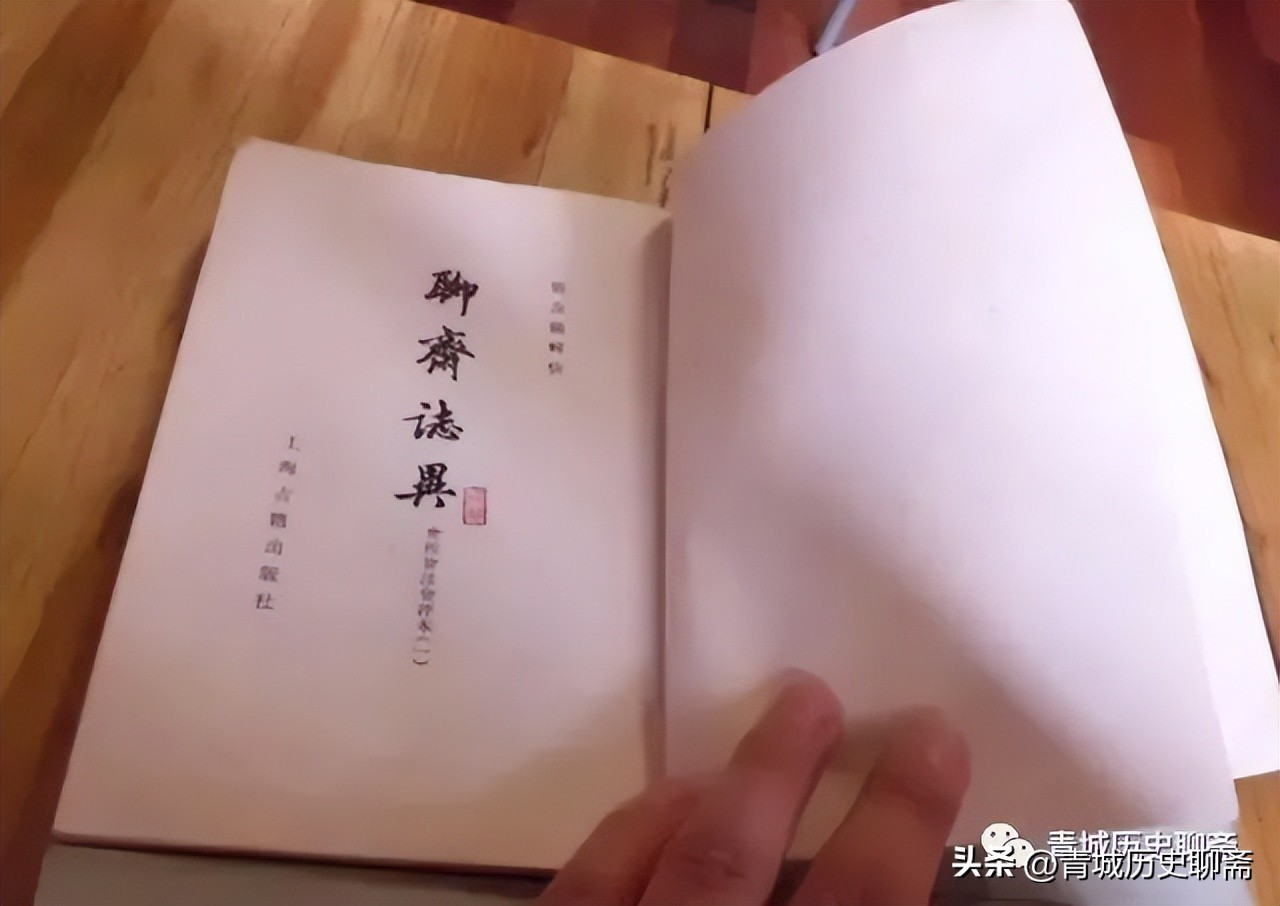 聊齋誌異
會校會注會評本(一)
上海古籍出版社
青城历史聊斋
头条 @青城历史聊斋